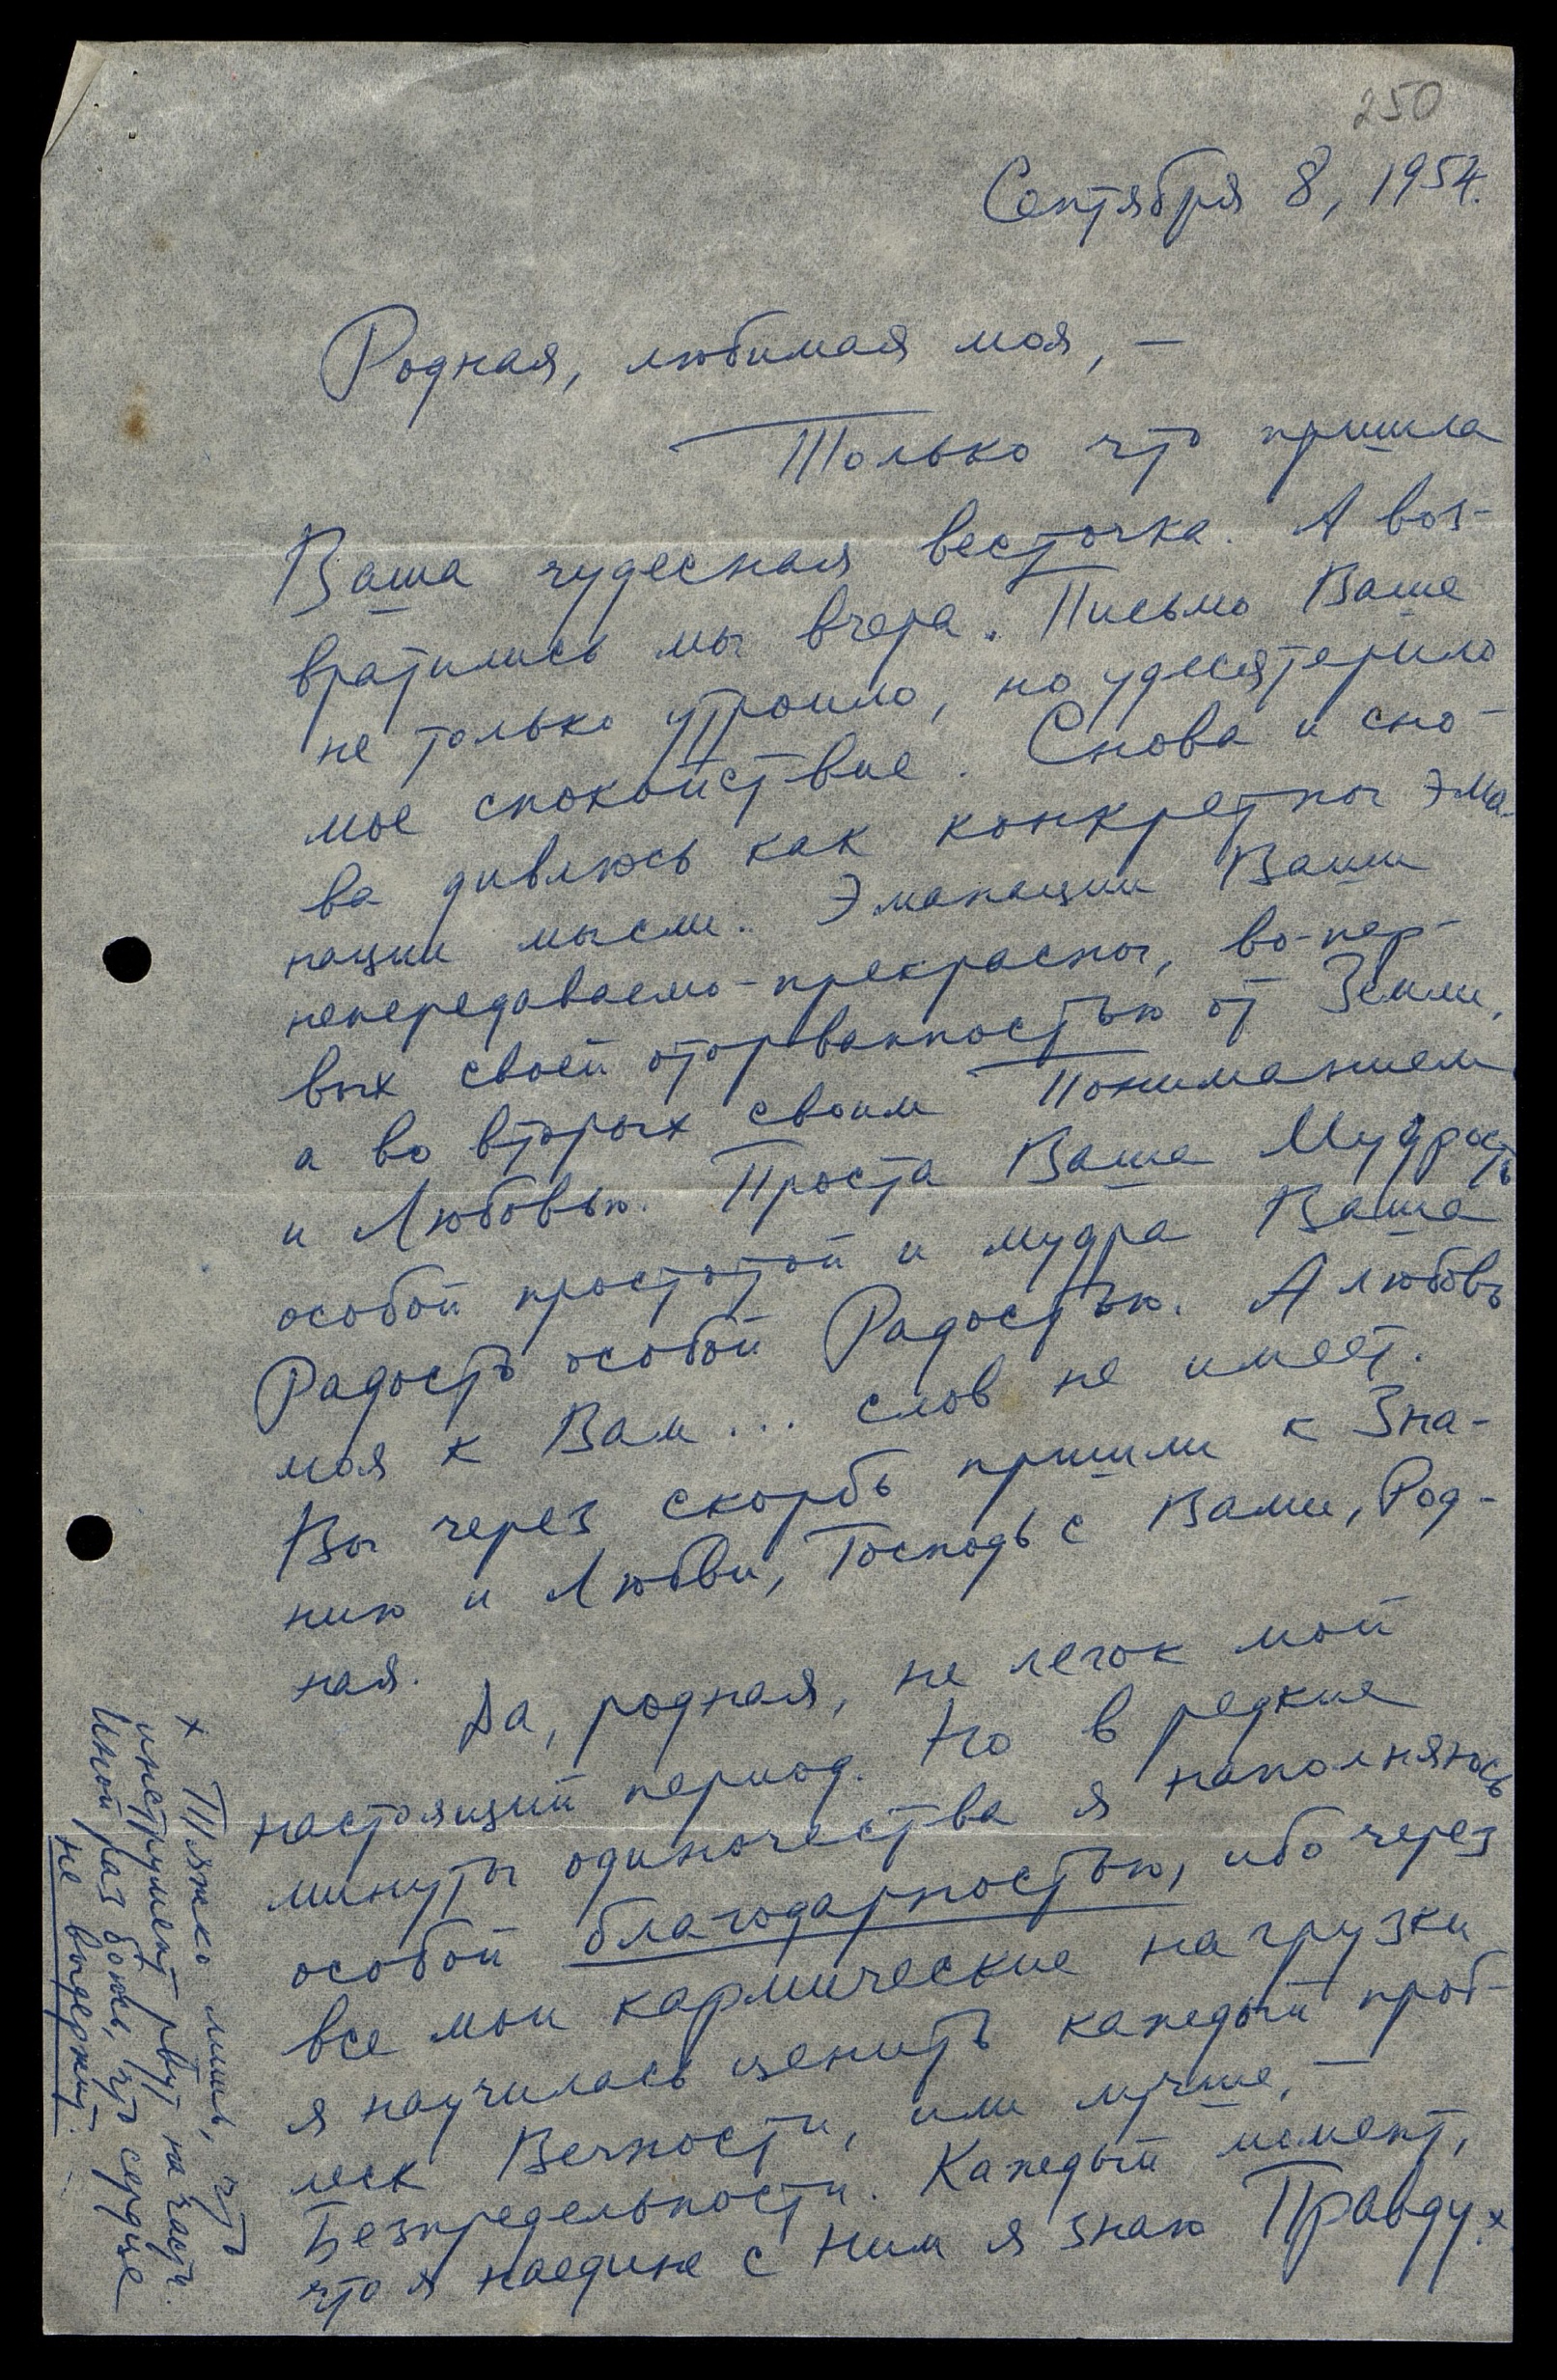 250
Сентября 8, 1954.
Родная, любимая моя, —
Только что пришла
Ваша чудесная весточка. А воз-
вратились мы вчера. Письмо Ваше
не только утроило, но удесятерило
мое спокойствие. Снова и сно-
ва дивлюсь как конкретны эма-
нации мысли. Эманации Ваши
непередаваемо-прекрасны, во-пер-
вых своей оторванностью от Земли,
а во вторых своим Пониманием
и Любовью. Проста Ваша Мудрость
особой простотой и мудра Ваша
Радость особой Радостью. А любовь
моя к Вам... слов не имеет.
Вы через скорбь пришли к Зна-
нию и Любви, Господь с Вами, Род-
ная.
Да, родная, не легок мой
настоящий период. Но в редкие
минуты одиночества я наполняюсь
особой благодарностью, ибо через
все мои кармические нагрузки
я научилась ценить каждый проб-
леск Вечности, или лучше, —
Безпредельности. Каждый момент,
что я наедине с Ним я знаю Правду.x
x Тяжко лишь, что
инструмент рвут на части.
Иной раз боюсь, что сердце
не выдержит.